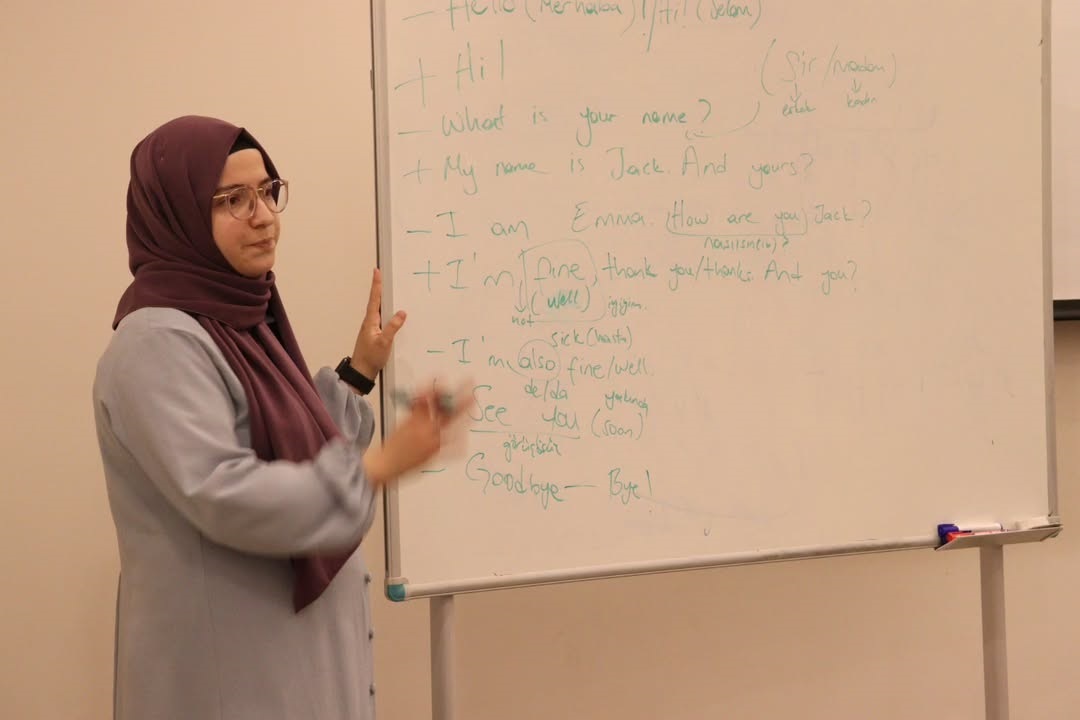 - Hello (Merhaba)! / Hi! (Selam)
+ Hi!
(Sir / Madam)
erkek kadın
- What is your name?
+ My name is Jack. And yours?
- I am Emma. How are you Jack?
nasılsın(ız)?
+ I'm fine, thank you/thanks. And you?
(well) iyiyim.
not
sick (hasta)
- I'm also fine/well.
de/da yakında
See you (soon)
görüşürüz
- Goodbye - Bye!